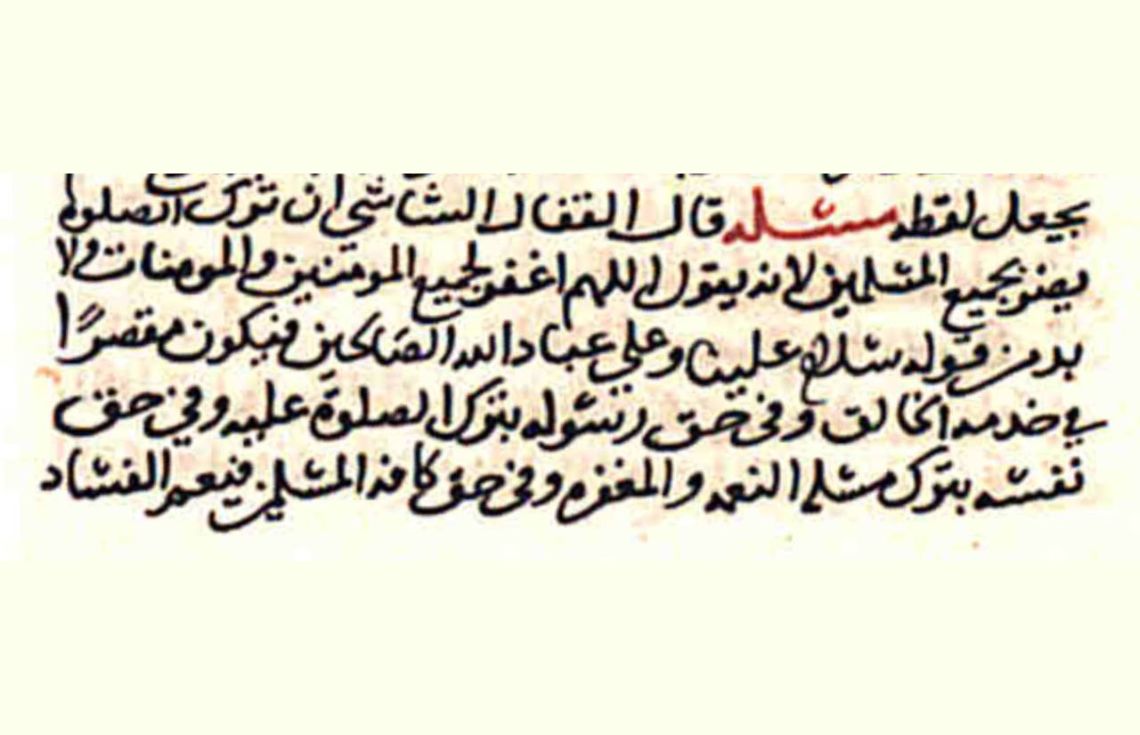 يجعل لقطه مسئله قال القفال الشاشي ان ترك الصلوة
يضر بجميع المسلمين لانه يقول اللهم اغفر لجميع المومنين والمومنات ولا
بد من قوله سلام علينا وعلي عباد الله الصالحين فيكون مقصرًا
في خدمه الخالق وفي حق رسوله بترك الصلوة عليه وفي حق
نفسه بترك النعمه والمغفره وفي حق كافه المسلمين فيعم الفساد